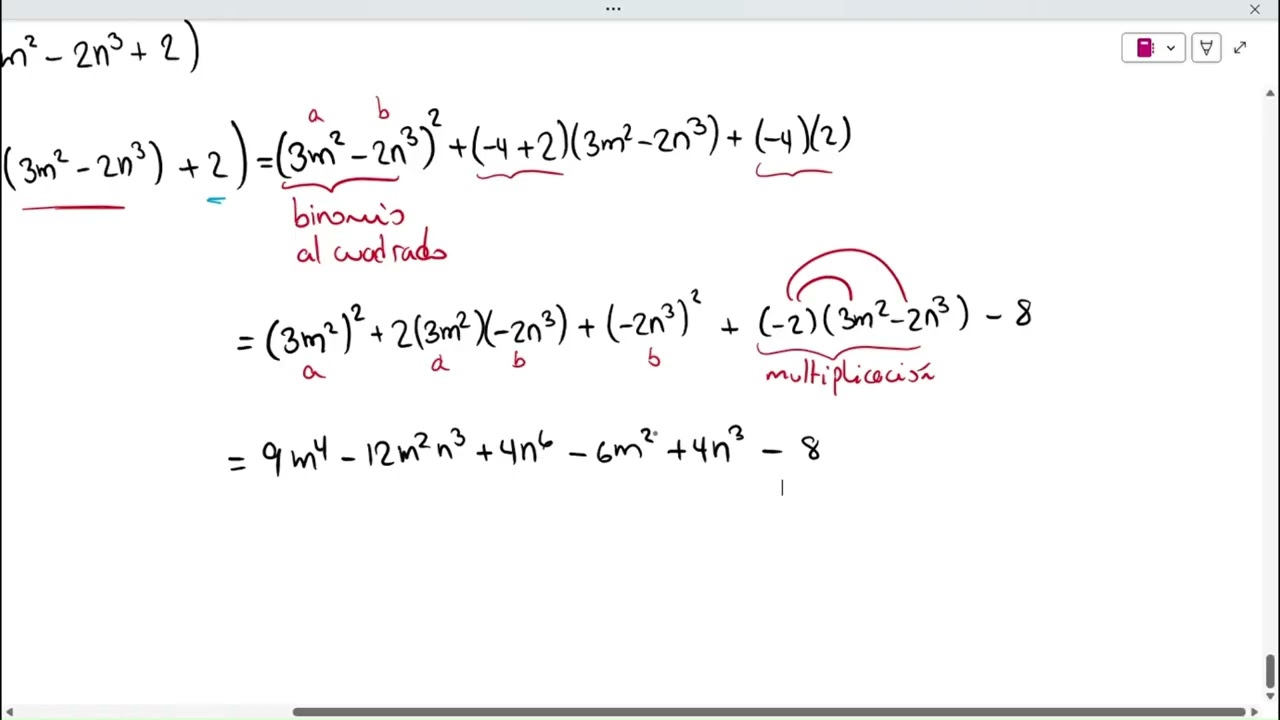 m² - 2n³ + 2)
a b
(3m² - 2n³) + 2) = (3m² - 2n³)² + (-4 + 2)(3m² - 2n³) + (-4)(2)
binomio
al cuadrado
= (3m²)² + 2(3m²)(-2n³) + (-2n³)² + (-2)(3m² - 2n³) - 8
a a b b
multiplicación
= 9m⁴ - 12m²n³ + 4n⁶ - 6m² + 4n³ - 8